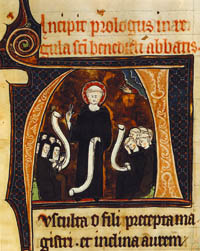 Incipit prologus in re
gula sci benedicti abbatis.
Ausculta o fili precepta ma
gistri. et inclina aurem